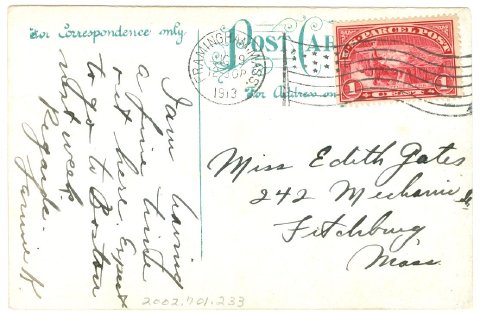 For Correspondence only
POST CAR
For Address on
FRAMINGHAM, MASS.
1913
U.S. PARCEL POST
1 CENT 1
I am having
a fine time
out here. Expect
to go to Boston
next week.
Regards.
Miss Edith Gates
242 Mechanic St
Fitchburg
Mass.
2002.701.233